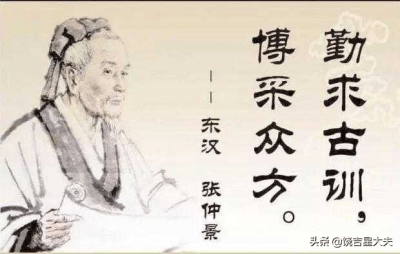 勤求古训，
博采众方。
——东汉 张仲景
头条@饶吉星大夫